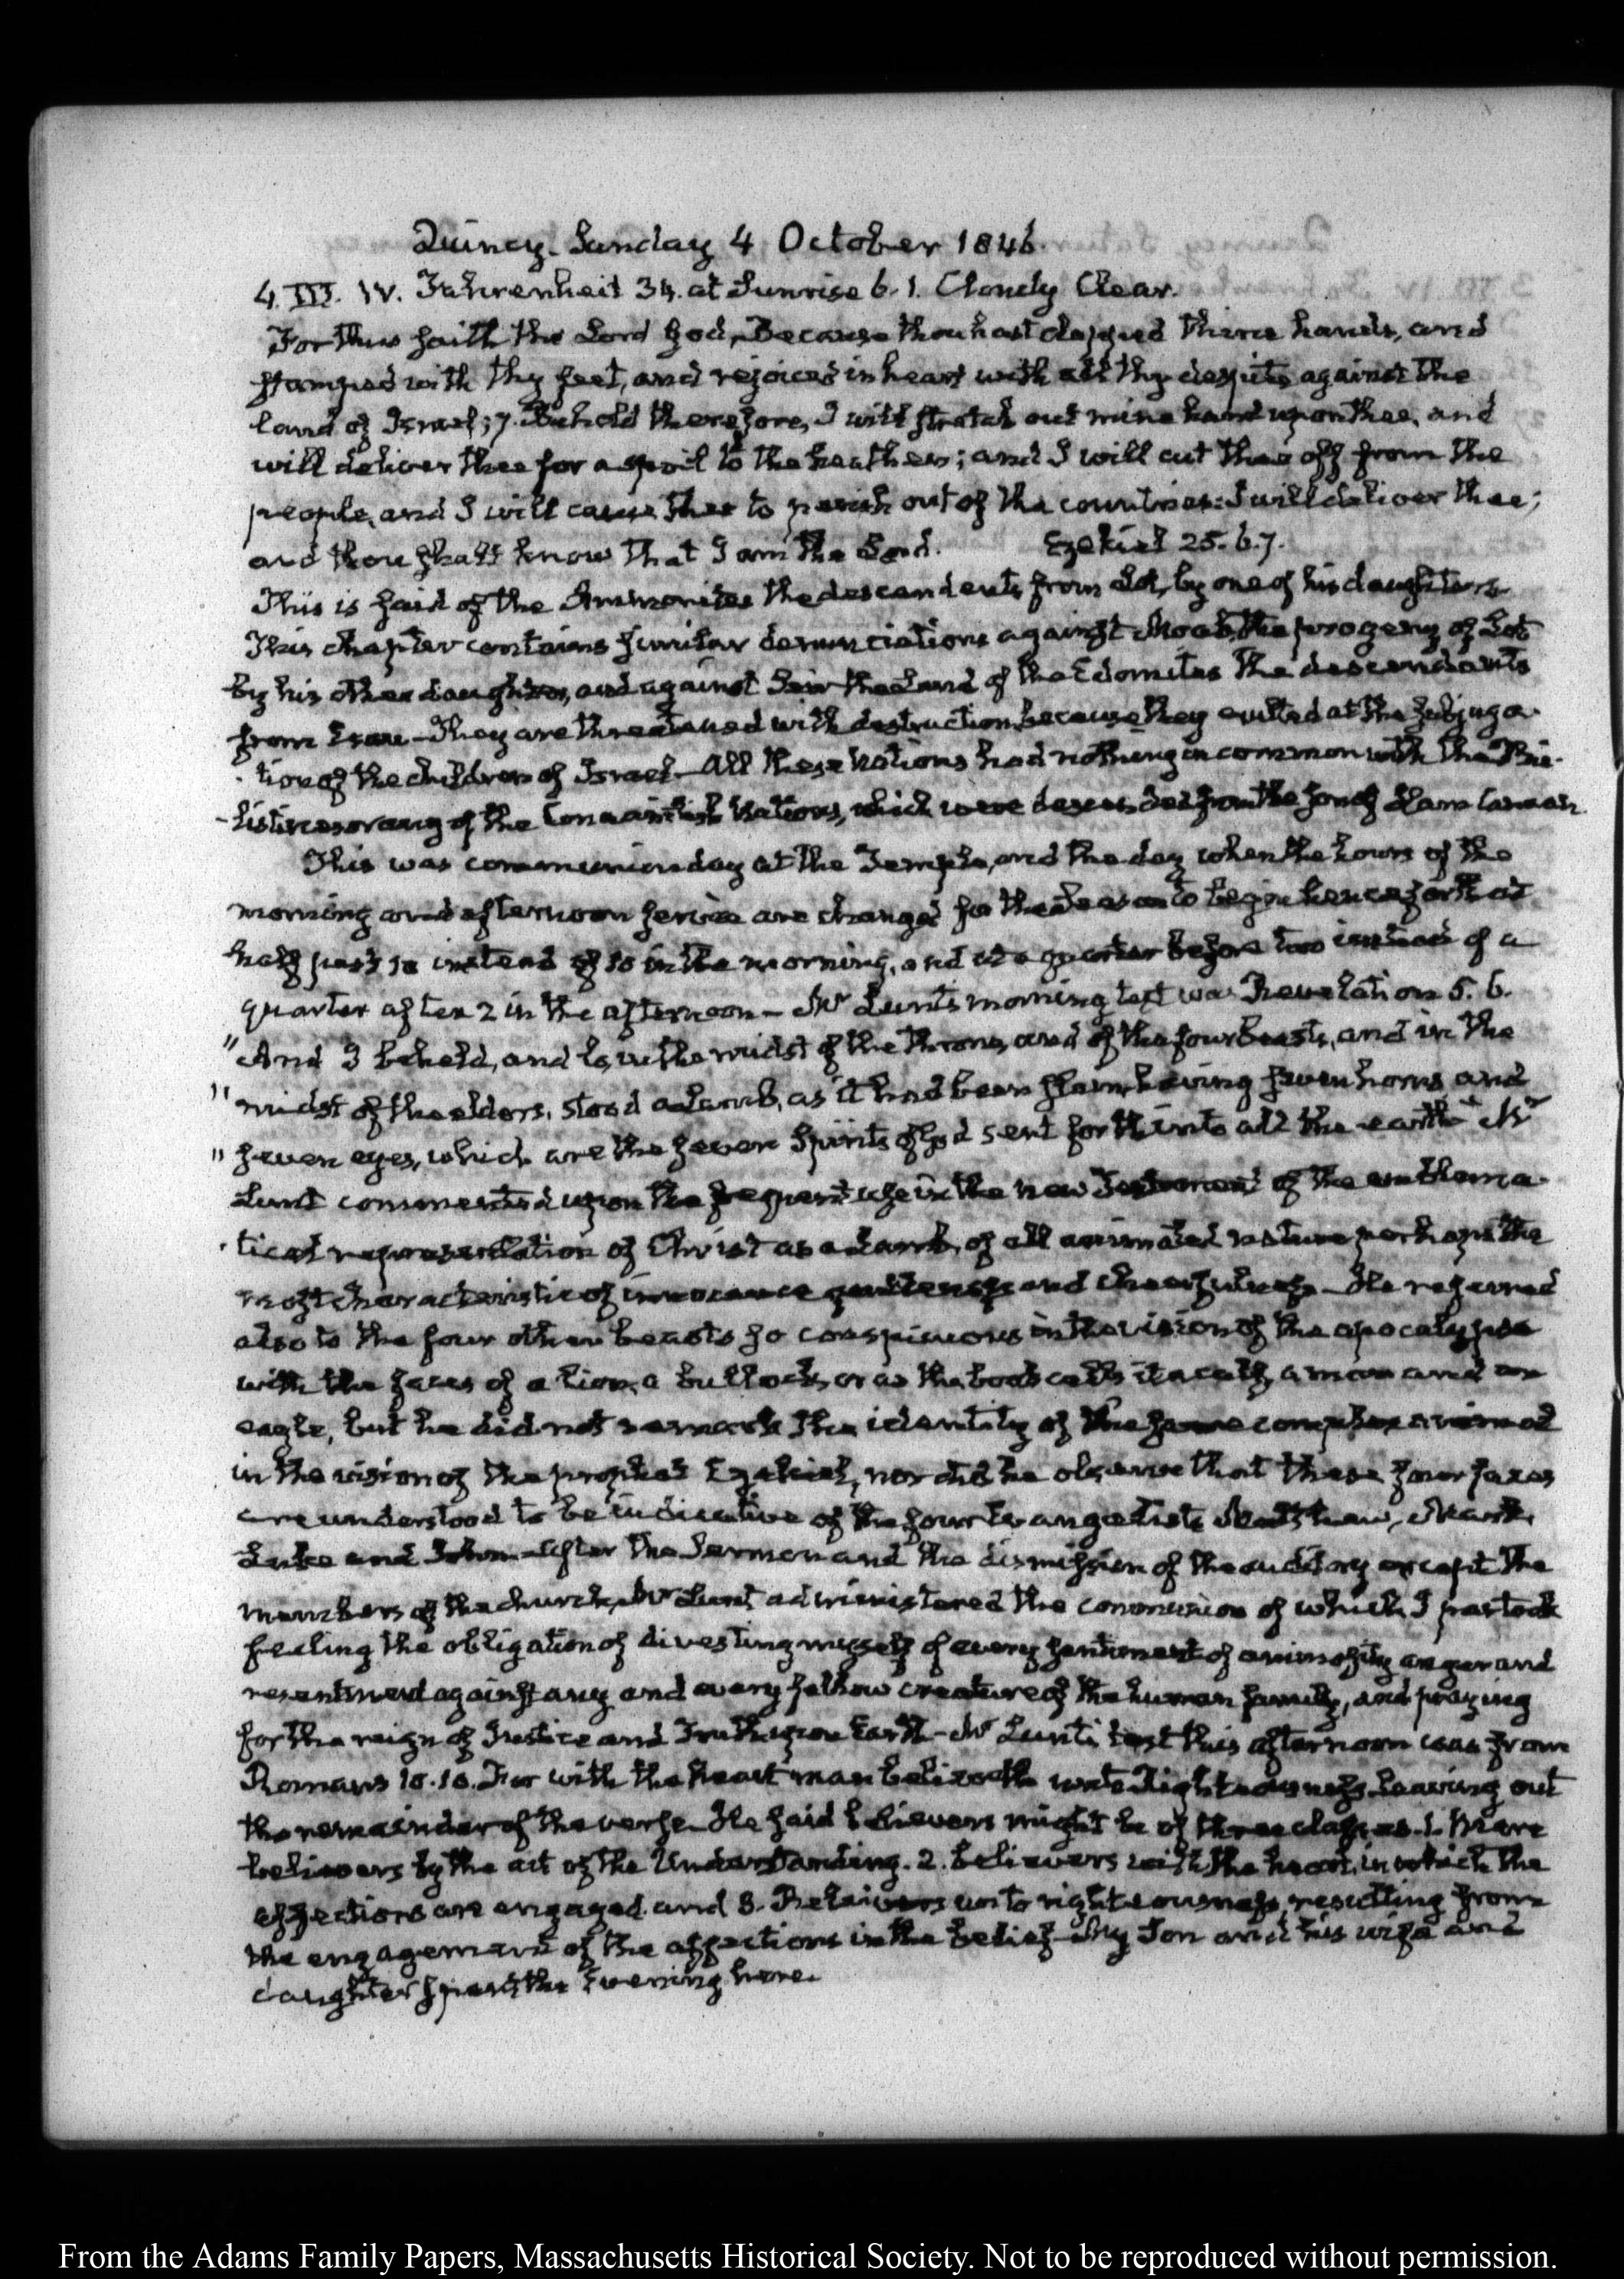 Quincy. Sunday 4 October 1846.
4. III. IV. Fahrenheit 34. at Sunrise 6.1. Cloudy Clear.
For thus saith the Lord God, Because thou hast clapped thine hands, and
stamped with thy feet, and rejoiced in heart with all thy despite against the
land of Israel; 7. Behold therefore, I will stretch out mine hand upon thee, and
will deliver thee for a spoil to the heathen; and I will cut thee off from the
people, and I will cause thee to perish out of the countries: I will deliver thee;
and thou shalt know that I am the Lord. Ezekiel 25. 6.7.
This is said of the Ammonites the descendents from Lot, by one of his daughters
This chapter contains similar denunciations against Moab, the progeny of Lot
by his other daughter, and against Seir the Land of the Edomites the descendants
from Esau - They are threatened with destruction because they exulted at the subjuga-
tion of the children of Israel - All these Nations had nothing in common with the Phi-
-listines or any of the Canaanitish Nations, which were descended from the son of Ham Canaan.
This was communion day at the Temple, and the day when the hours of the
morning and afternoon service are changed for the Season to begin henceforth at
half past 10 instead of 10 in the morning, and at a quarter before two instead of a
quarter after 2 in the afternoon - Mr Lunt's morning text was Revelation 5. 6.
"And I beheld, and lo, in the midst of the throne, and of the four beasts, and in the
"midst of the elders, stood a Lamb, as it had been slain, having seven horns and
"seven eyes, which are the seven Spirits of God sent forth into all the earth" Mr
Lunt commented upon the frequent use in the new Testament of the emblema-
tical representation of Christ as a Lamb, of all animated nature perhaps the
most characteristic of innocence gentleness and cheerfulness - He referred
also to the four other beasts so conspicuous in the vision of the apocalypse
with the faces of a lion, a bullock, or as the book calls it a calf, a man and an
eagle, but he did not remark the identity of the same complex animal
in the vision of the prophet Ezekiel, nor did he observe that these four faces
are understood to be indicative of the four Evangelists Matthew, Mark,
Luke and John - After the Sermon and the dismission of the auditory except the
members of the church, Mr Lunt administered the communion of which I partook
feeling the obligation of divesting myself of every sentiment of animosity anger and
resentment against any and every fellow creature of the human family, and praying
for the reign of Justice and Truth upon Earth - Mr Lunt's text this afternoon was from
Romans 10.10. For with the heart man believeth unto Righteousness, leaving out
the remainder of the verse. He said believers might be of three classes. 1. Mere
believers by the act of the Understanding. 2. believers with the heart, in which the
affections are engaged. and 3. Believers unto righteousness, resulting from
the engagement of the affections in the belief - My Son and his wife and
daughter spent the Evening here.
From the Adams Family Papers, Massachusetts Historical Society. Not to be reproduced without permission.